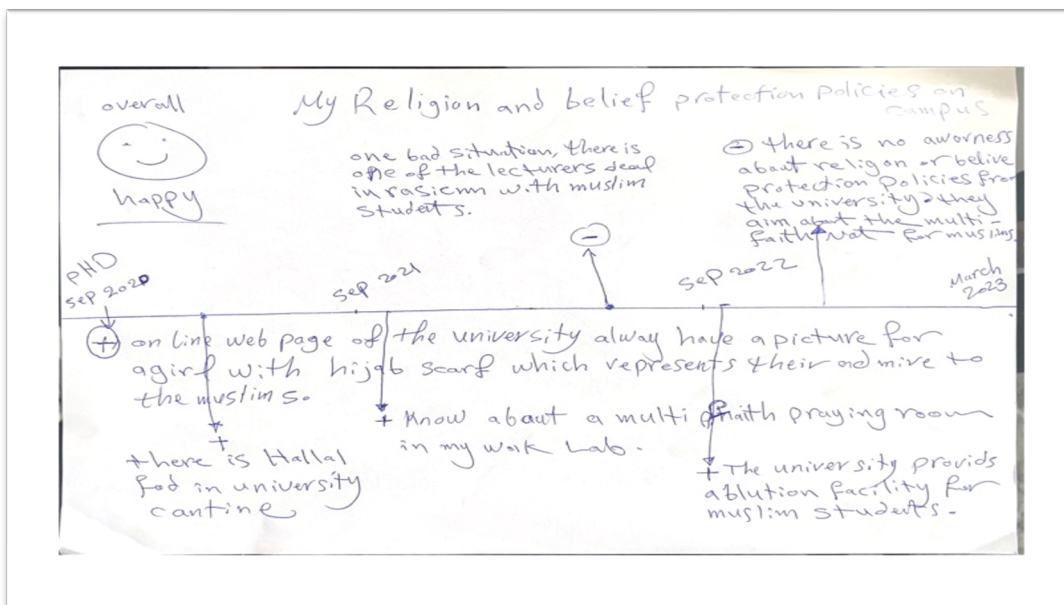 overall
happy
My Religion and belief protection policies on
campus
one bad situation, there is
one of the lecturers deal
in rasicmn with muslim
students.
⊖ there is no aworness
about religon or belive
protection policies from
the university, they
aim about the multi-
faith not for muslims.
-
PHD
sep 2020
sep 2021
sep 2022
March
2023
+ on line web page of the university alway have a picture for
agirl with hijab scarf which represents their admire to
the muslims.
+
there is Hallal
fod in university
cantine
+ Know about a multi faith praying room
in my work Lab.
+ The university provids
ablution facility for
muslim students.